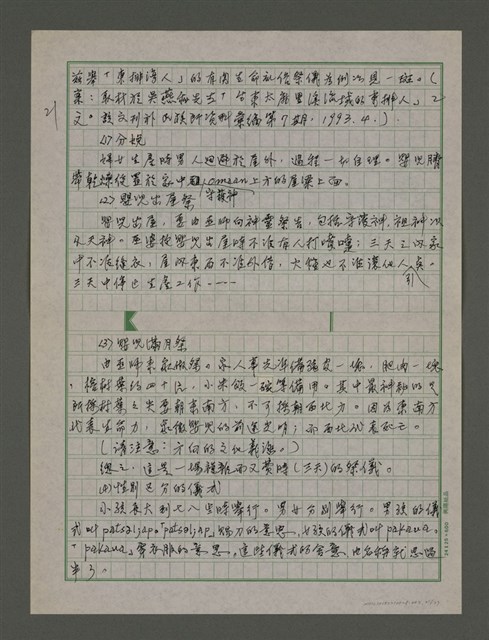 茲舉「東排灣人」的有關生命禮俗祭儀為例以見一斑。(
案:取材於吳燕和先生「台東太麻里溪流域的東排人」之
文。該文刊於民族所資料彙編第7期,1993.4.)
21
(1)分娩
婦女生產時男人迴避於屋外,過程一切自理。嬰兒臍
帶乾燥後置於家中 umaan上方的屋樑上面。
守護神
(2)嬰兒出屋祭
嬰兒出屋,要由巫師向神靈祭告,包括守護神,祖神以
及天神。巫婆抱嬰兒出屋時不准有人打噴嚏;三天之內家
中不准縫衣,屋內東西不准外借,火種也不准讓他人
引
三天中停止生產工作。……
(3)嬰兒滿月祭
由巫師來家做儀。家人事先準備豬皮一塊,肥肉一塊
,榕樹葉約四十片,小米飯一碗等備用。其中最神秘的是
所採樹葉之尖要朝東南方,不可摘朝西北方。因為東南方
代表生命力,象徵嬰兒的前途光明;而西北代表死亡。
(請注意:方向的文化義涵。)
總之,這是一場複雜而又費時(三天)的祭儀。
(4)性別區分的儀式
小孩長大到七八歲時舉行。男女分別舉行。男孩的儀
式叫patsaljap。「patsaljap」賜力的意思,女孩的儀式叫pakaua,
「pakaua」穿衣服的意思,這些儀式的含意,由名稱就思過
半了。